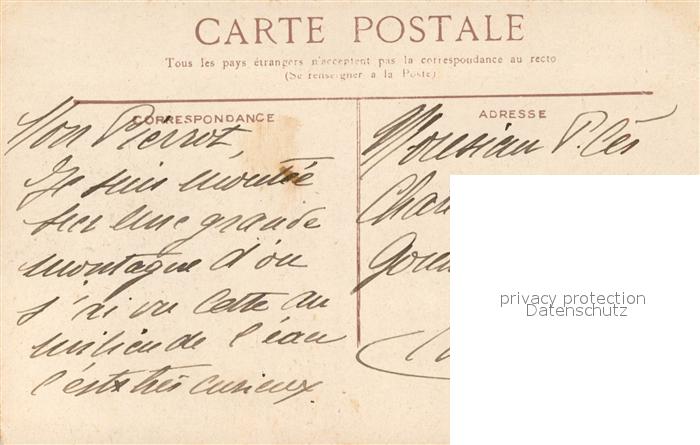 CARTE POSTALE
Tous les pays étrangers n'acceptent pas la correspondance au recto
(Se renseigner à la Poste)
CORRESPONDANCE
Mon Pierrot,
Je suis montée
sur une grande
montagne d'où
j'ai vu Cette au
milieu de l'eau
c'est très curieux
ADRESSE
Monsieur P.
privacy protection
Datenschutz